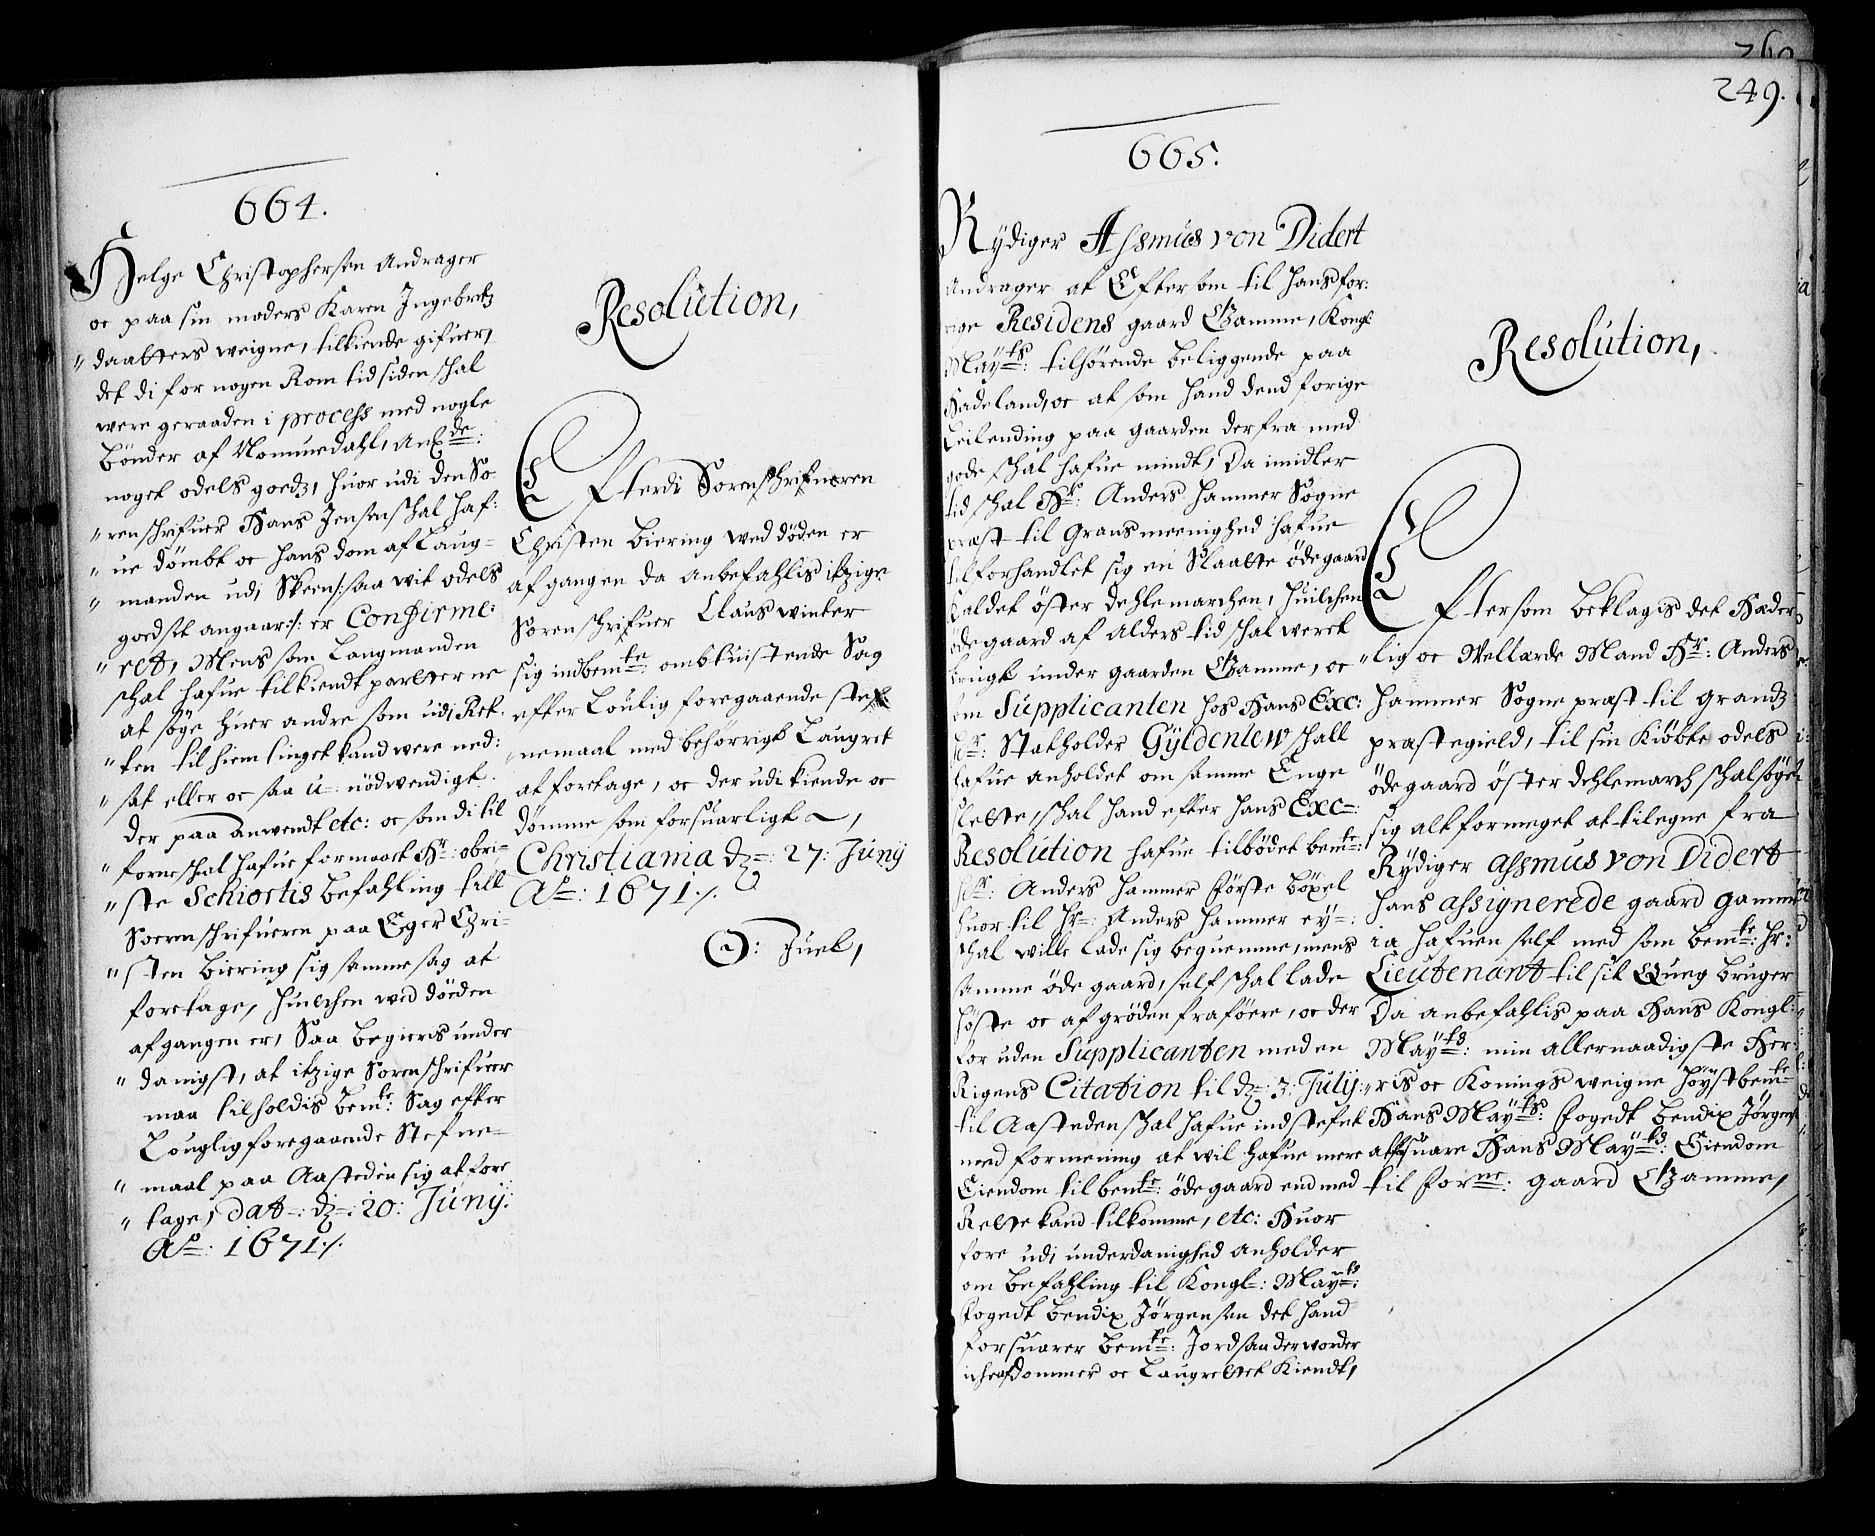 664.
Helge Christophersen Andrager
oc paa sin moders Karen Ingebretz
" daatters weigne, tilkiende gifuer,
det di for nogen Rom tid siden schal
were geraaden i process med nogle
Bönder af Nommedahl, An:de:
noget odels goedz, huor udi den So
" renschrifuer Hans Jensen schal haf:
" ue dömbt oc hans dom af Laug=
" manden udi Skeen :/: saa wit odels
goedset angaar :/: er Confirme:
" ret, Mens som Laugmanden
schal hafue tilkiendt parterne
at söge huer andre som udj Ret.
" ten til hiemtinget kand were ned:
" sat eller oc saa u=: nödwendigt.
der paa anwendt etc: oc som di til
" forne schal hafue formaaet Hr: obri=
" ste Schiortis befahling till
Sorenschrifueren paa Eger Chri=
" sten Biering sig samme sag at
foretage, huilchen wed döeden
afgangen er, Saa begieris under
" danigst, at itzige Sorenschrifuer
maa tilholdis bemte: Sag efter
Louglig foregaaende Stefne=
" maal paa Aasteden sig at fore
" tage, dat=: dz=: 20: Junij:
Ao=: 1671 ./.
Resolution,
Efterdi Sorenschrifueren
Christen Biering wed döden er
afgangen da anbefahlis itzige
Sorenschrifuer Claus winter
sig indbemte ombtuistende Sag
efter Loulig foregaaende stef
" nemaal med behörrigt Laugret
at foretage, oc der udi kiende oc
dömme som forsuarligt ~,
Christiania dz=: 27: Junij
Ao=: 1671 ./.
O: Juel,
249.
665.
Rydiger Assmus von Didert
Andrager at Efter som til hans for:
rige Residens gaard Gamme, Kongl
Mayts: tilhörende beliggende paa
Hadeland, oc at som hand dend forige
Leilending paa gaarden derfra med
gode schal hafue mindt, Da imidler
tid schal Hr: Anders Hammer Sogne
præst til Grans meenighed hafue
tilforhandlet sig en Slaatte ödegaard
Kaldet öster dehlemarchen, huilchen
ödegaard af Alders tid schal weret
brugt under gaarden Gamme, oc
som Supplicanten hos Hans Exc:
Hr: Statholder Gyldenlew schall
hafue anholdet om samme Enge
slette, schal hand efter hans Exc=:
Resolution hafue tilbödet bemte:
Hr: Anders Hammer förste böxel
huor til Hr=: Anders Hammer ey=:
schal wille lade sig beqvemme, mens
samme öde gaard, self schal lade
höste oc afgröden fraföere, oc der
for uden Supplicanten med en
Rigens Citation til dz=: 3: July:
til Aasteden schal hafue indstefnet
med formening at wil hafue mere
Eiendom til bemte: ödegaard end med
Rette kand tilkomme, etc: Huor
fore udj underdanighed anholder
om befahling til Kongl=: Mayts:
fogedt Bendix Jörgensen det hand
forsuarer bemte: Jord saa der worder
iche afdommer oc Laugrettet Kiendt,
Resolution,
Eftersom beklagis det Hæder
" lig oc Wellærde Mand Hr: Anders
Hammer Sogne præst til grandz
præstegield, til sin Kiöbte odels
ödegaard öster dehlemarch schal söge
sig alt formeget at tilegne fra
Rydiger Assmus von Didert
hans assignerede gaard Gamme
ia hafuen self med som bemte: Hr:
Lieutenant til sit Quæg bruger
Da anbefahlis paa Hans Kongl:
Mayts: min allernaadigste Her:
" ris oc Konings weigne höystbemte
Hans Mayts: fogedt Bendix Jörgens
at forsuare Hans Mayts: Eiendom
til forne: gaard Gamme,